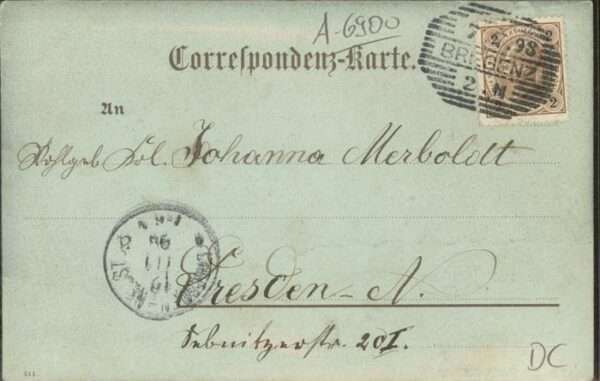 A-6900
Correspondenz-Karte.
2 2
98
BREGENZ
2 N
2 2
An
Wohlgeb Frl. Johanna Merboldt
Dresden-N.
Sebnitzerstr. 20I.
DC